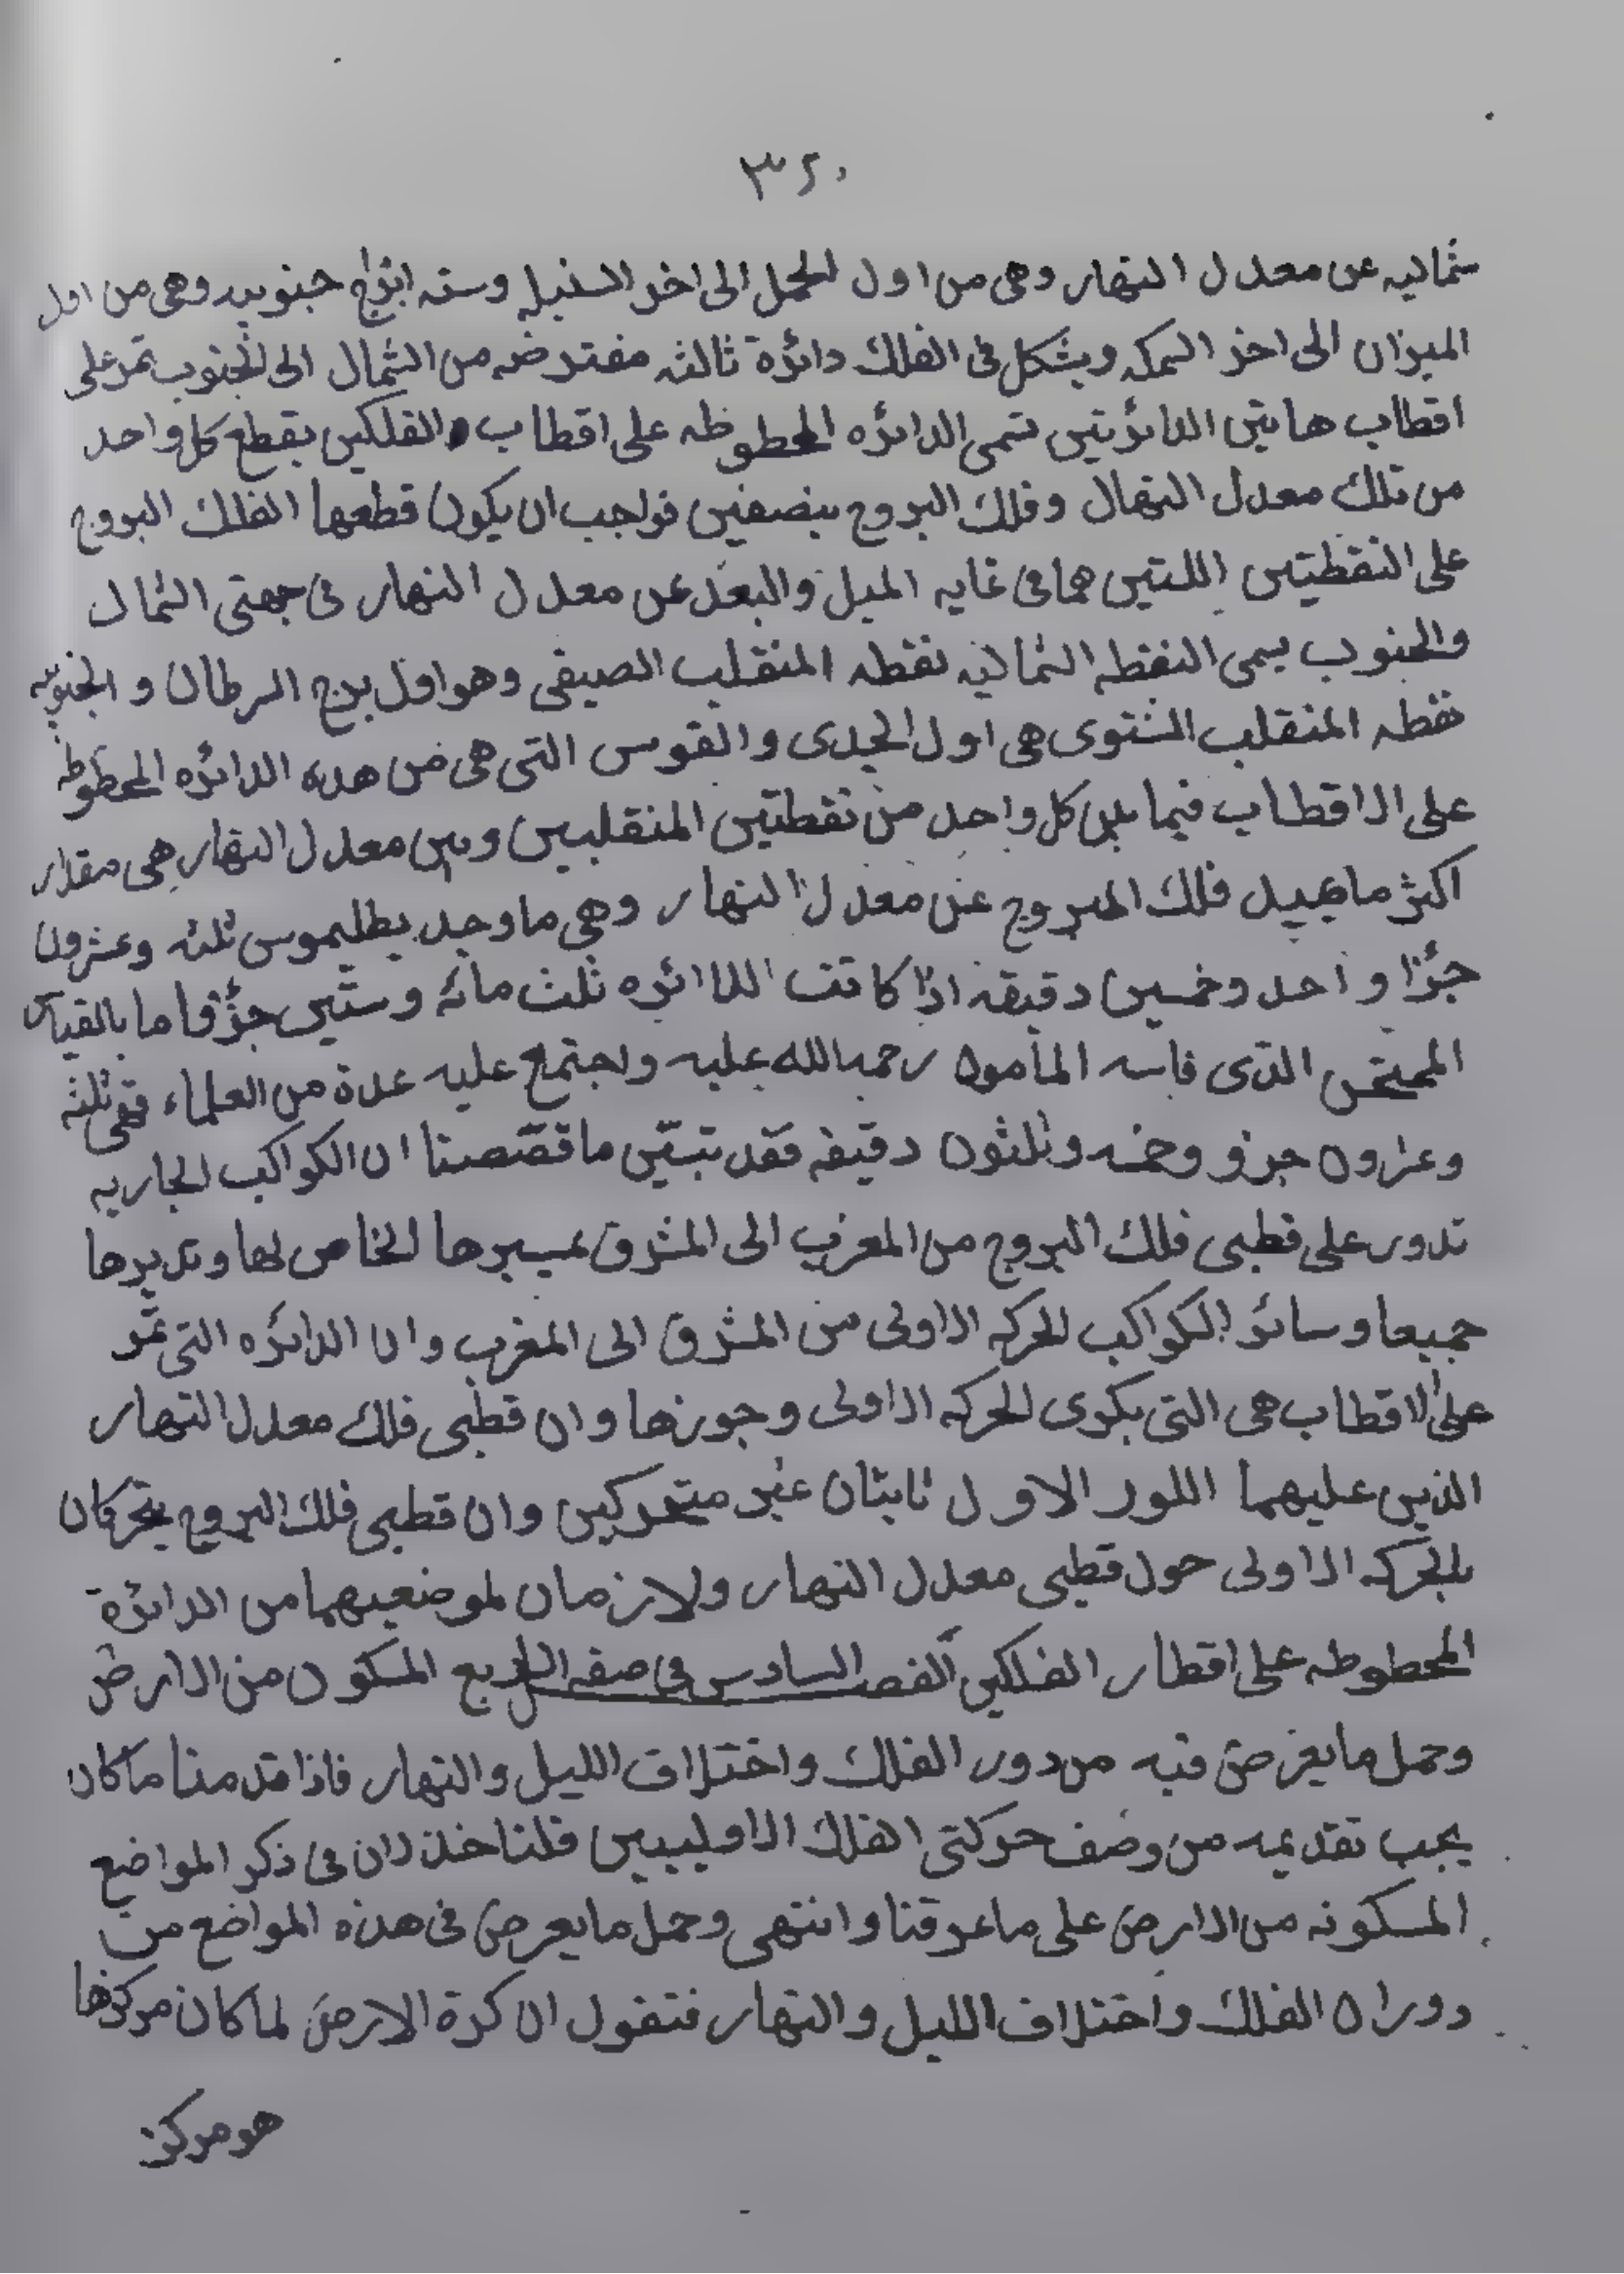 ٣٢٠
شماليه عن معدل النهار وهى من اول الحمل الى اخر السنبله وسته ابراج جنوبيه وهى من اول
الميزان الى اخر السمكه ويشكل فى الفلك دائرة ثالثه مفترضه من الشمال الى الجنوب تمر على
اقطاب هاتين الدائرتين تسمى الدائره المخطوطه على اقطاب الفلكين يقطع كل واحد
من تلك معدل النهال وفلك البروج بنصفين فواجب ان يكون قطعها الفلك البروج
على النقطتين اللتين هما فى غايه الميل والبعد عن معدل النهار فى جهتى الشمال
والجنوب يسمى النقطه الشماليه نقطه المنقلب الصيفى وهو اول برج السرطان والجنوبيه
نقطه المنقلب الشتوى هى اول الجدى والقوس التى هى من هده الدائره المخطوطه
على الاقطاب فيما بين كل واحد من نقطتين المنقلبين وبين معدل النهار هى مقدار
اكثر ما يميل فلك البروج عن معدل النهار وهى ما وجد بطليموس ثلثه وعشرون
جزؤا واحد وخمسين دقيقه اذا كانت الدائره ثلث مائه وستين جزؤ فاما بالقياس
الممتحن الذى قاسه المأمون رحمه الله عليه واجتمع عليه عدة من العلماء فهى ثلثه
وعشرون جزو وخمسه وثلثون دقيقه فقد تبين ما قصصنا ان الكواكب الجاريه
تدور على قطبى فلك البروج من المغرب الى المشرق بمسيرها الخاص لها وتديرها
جميعا وسائر الكواكب الحركه الاولى من المشرق الى المغرب وان الدائره التى تمر
على الاقطاب هى التى بكوى الحركه الاولى وجوزها وان قطبى فلك معدل النهار
الذين عليهما اللور الاول ثابتان غير متحركين وان قطبى فلك البروج يتحركان
بالحركه الاولى حول قطبى معدل النهار ولازمان لموضعيهما من الدائرة
المخطوطه على اقطار الفلكين الفصل السادس فى صفه الربع المسكون من الارض
وجمل ما يعرض فيه من دور الفلك واختلاف الليل والنهار فاذا قدمنا ما كان
يجب تقديمه من وصف حركتى الفلك الاوليين قلناخذ دان فى ذكر المواضع
المسكونه من الارض على ما عرفنا وانتهى وجمل ما يعرض فى هذه المواضع من
دوران الفلك واختلاف الليل والنهار فنقول ان كرة الارض لما كان مركزها
هو مركز